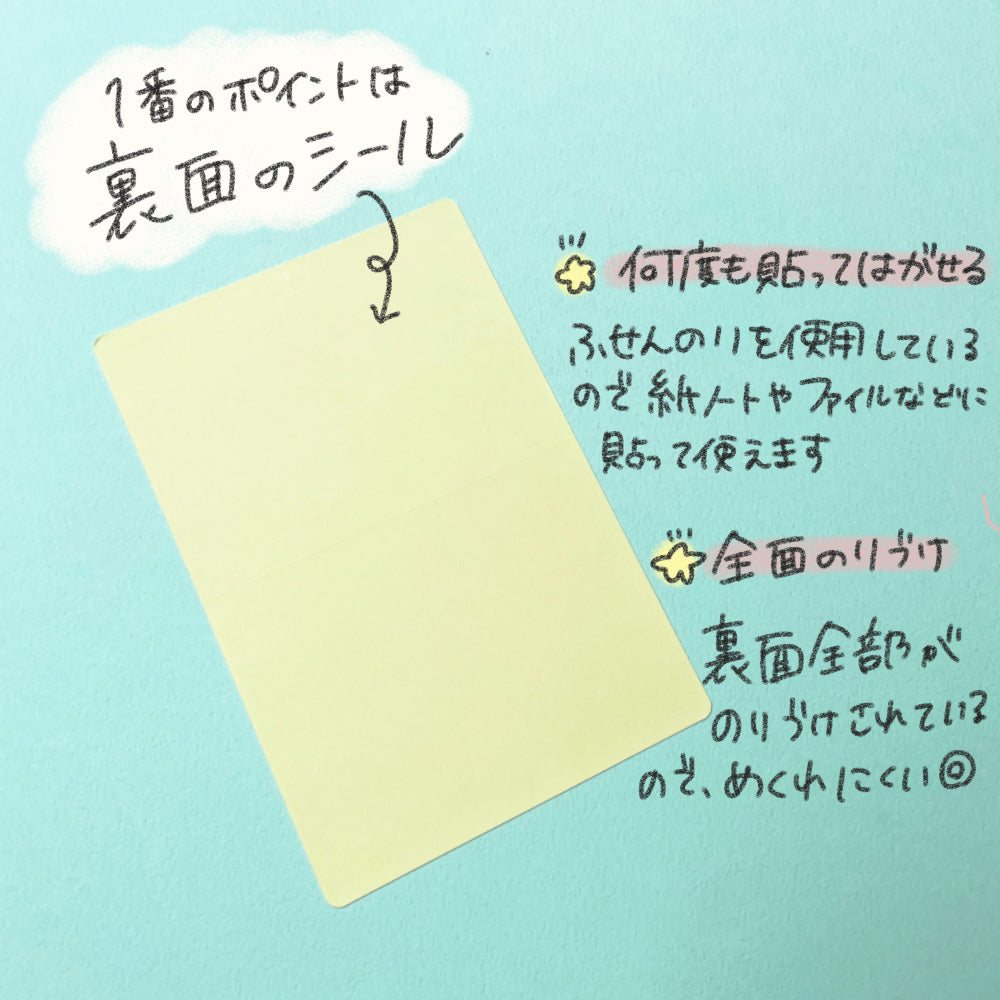 1番のポイントは
裏面のシール
何度も貼ってはがせる
ふせんのりを使用している
ので紙ノートやファイルなどに
貼って使えます
全面のりづけ
裏面全部が
のりづけされている
ので、めくれにくい◎